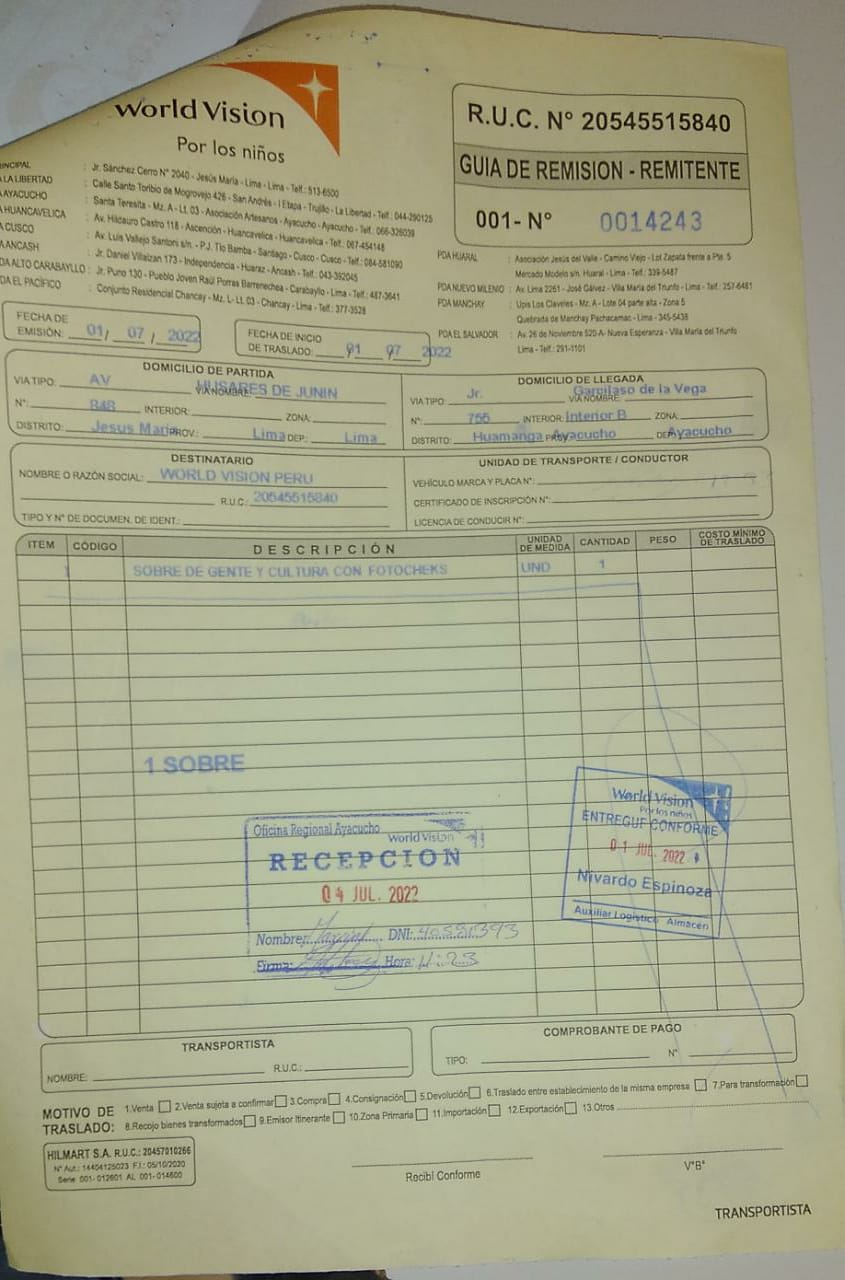 World Vision
Por los niños
R.U.C. N° 20545515840
GUIA DE REMISION - REMITENTE
001- N° 0014243
INCIPAL : Jr. Sánchez Cerro N° 2040 - Jesús María - Lima - Lima - Telf.: 513-6500
A LA LIBERTAD : Calle Santo Toribio de Mogrovejo 426 - San Andrés - I Etapa - Trujillo - La Libertad - Telf.: 044-290125
A AYACUCHO : Santa Teresita - Mz. A - Lt. 03 - Asociación Artesanos - Ayacucho - Ayacucho - Telf.: 066-326039
A HUANCAVELICA : Av. Hildauro Castro 118 - Ascención - Huancavelica - Huancavelica - Telf.: 067-454148
A CUSCO : Av. Luis Vallejo Santoni s/n - P.J. Tío Bamba - Santiago - Cusco - Cusco - Telf.: 084-581090
A ANCASH : Jr. Daniel Villaizan 173 - Independencia - Huaraz - Ancash - Telf.: 043-392045
DA ALTO CARABAYLLO : Jr. Puno 130 - Pueblo Joven Raúl Porras Barrenechea - Carabayllo - Lima - Telf.: 487-3641
DA EL PACÍFICO : Conjunto Residencial Chancay - Mz. L- Lt. 03 - Chancay - Lima - Telf.: 377-3528
PDA HUARAL : Asociación Jesús del Valle - Camino Viejo - Lot Zapata frente a Pte. 5
Mercado Modelo s/n. Huaral - Lima - Telf.: 339-5487
PDA NUEVO MILENIO : Av. Lima 2261 - José Gálvez - Villa María del Triunfo - Lima - Telf.: 257-6481
PDA MANCHAY : Upis Los Claveles - Mz. A - Lote 04 parte alta - Zona 5
Quebrada de Manchay Pachacamac - Lima - 345-5438
PDA EL SALVADOR : Av. 26 de Noviembre 520-A- Nueva Esperanza - Villa María del Triunfo
Lima - Telf.: 291-1101
FECHA DE
EMISIÓN: 01/ 07 / 2022
FECHA DE INICIO
DE TRASLADO: 01 07 2022
DOMICILIO DE PARTIDA
VIA TIPO: AV VIA NOMBRE: HUSARES DE JUNIN
N°: 848 INTERIOR: ZONA:
DISTRITO: Jesus Maria PROV.: Lima DEP.: Lima
DOMICILIO DE LLEGADA
VIA TIPO: Jr. VIA NOMBRE: Garcilaso de la Vega
N°: 755 INTERIOR: Interior B ZONA:
DISTRITO: Huamanga PROV.: Ayacucho DEP.: Ayacucho
DESTINATARIO
NOMBRE O RAZÓN SOCIAL: WORLD VISION PERU
R.U.C.: 20545515840
TIPO Y N° DE DOCUMEN. DE IDENT.:
UNIDAD DE TRANSPORTE / CONDUCTOR
VEHÍCULO MARCA Y PLACA N°:
CERTIFICADO DE INSCRIPCIÓN N°:
LICENCIA DE CONDUCIR N°:
ITEM CÓDIGO DESCRIPCIÓN UNIDAD DE MEDIDA CANTIDAD PESO COSTO MÍNIMO DE TRASLADO
1 SOBRE DE GENTE Y CULTURA CON FOTOCHEKS UND 1
1 SOBRE
Oficina Regional Ayacucho World Vision
RECEPCION
04 JUL. 2022
Nombre: DNI: 40521393
Firma: Hora: 11:23
World Vision
Por los niños
ENTREGUE CONFORME
01 JUL. 2022
Nivardo Espinoza
Auxiliar Logístico Almacén
TRANSPORTISTA
NOMBRE: R.U.C.:
COMPROBANTE DE PAGO
TIPO: N°
MOTIVO DE TRASLADO: 1.Venta 2.Venta sujeta a confirmar 3.Compra 4.Consignación 5.Devolución 6.Traslado entre establecimiento de la misma empresa 7.Para transformación
8.Recojo bienes transformados 9.Emisor Itinerante 10.Zona Primaria 11.Importación 12.Exportación 13.Otros
HILMART S.A. R.U.C.: 20457010266
N° Aut.: 14404125023 F.I.: 05/10/2020
Serie 001- 012601 AL 001- 014600
Recibí Conforme
V°B°
TRANSPORTISTA